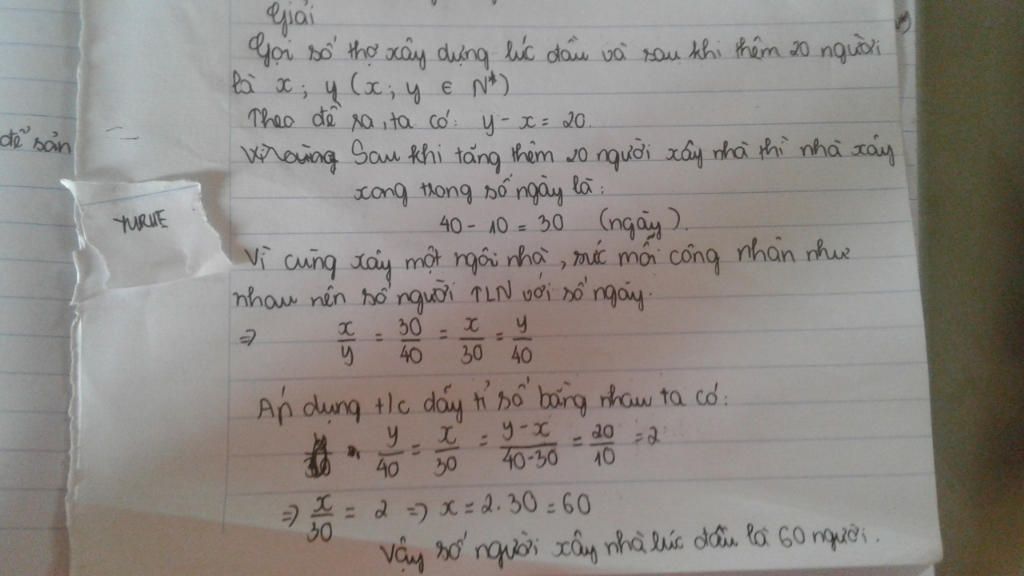 Giải
Gọi số thợ xây dựng lúc đầu và sau khi thêm 20 người
là x; y (x; y ∈ N*)
Theo đề ra, ta có: y - x = 20.
để sản
Sau khi tăng thêm 20 người xây nhà thì nhà xây
xong trong số ngày là:
YURUE
40 - 10 = 30 (ngày).
Vì cùng xây một ngôi nhà, sức mỗi công nhân như
nhau nên số người TLN với số ngày.
=> x/y = 30/40 = x/30 = y/40
Áp dụng t/c dãy tỉ số bằng nhau ta có:
y/40 = x/30 = y-x/40-30 = 20/10 = 2
=> x/30 = 2 => x = 2.30 = 60
Vậy số người xây nhà lúc đầu là 60 người.